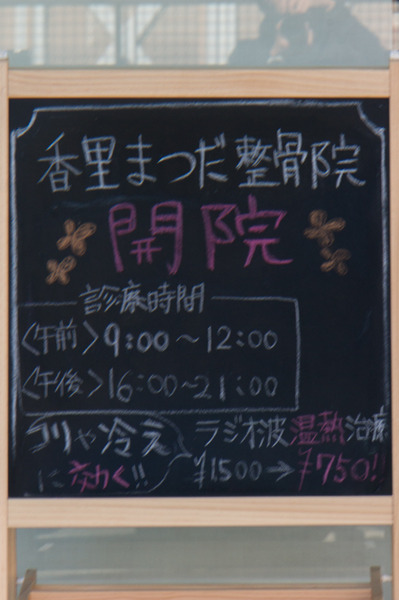 香里まつだ整骨院
開院
診療時間
〈午前〉9:00〜12:00
〈午後〉16:00〜21:00
コリや冷え
に効く!!
ラジオ波温熱治療
¥1,500→¥750!!